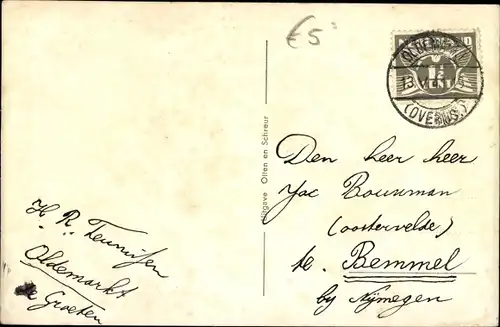 €5
NEDERLAND
1½
CENT
13 V
(OVERIJS.)
Uitgave Otten en Schreur
Den heer heer
Jac Bouwman
(oostervelde)
te. Bemmel
by Nymegen
H. R. Teunissen
Oldemarkt
Groeten